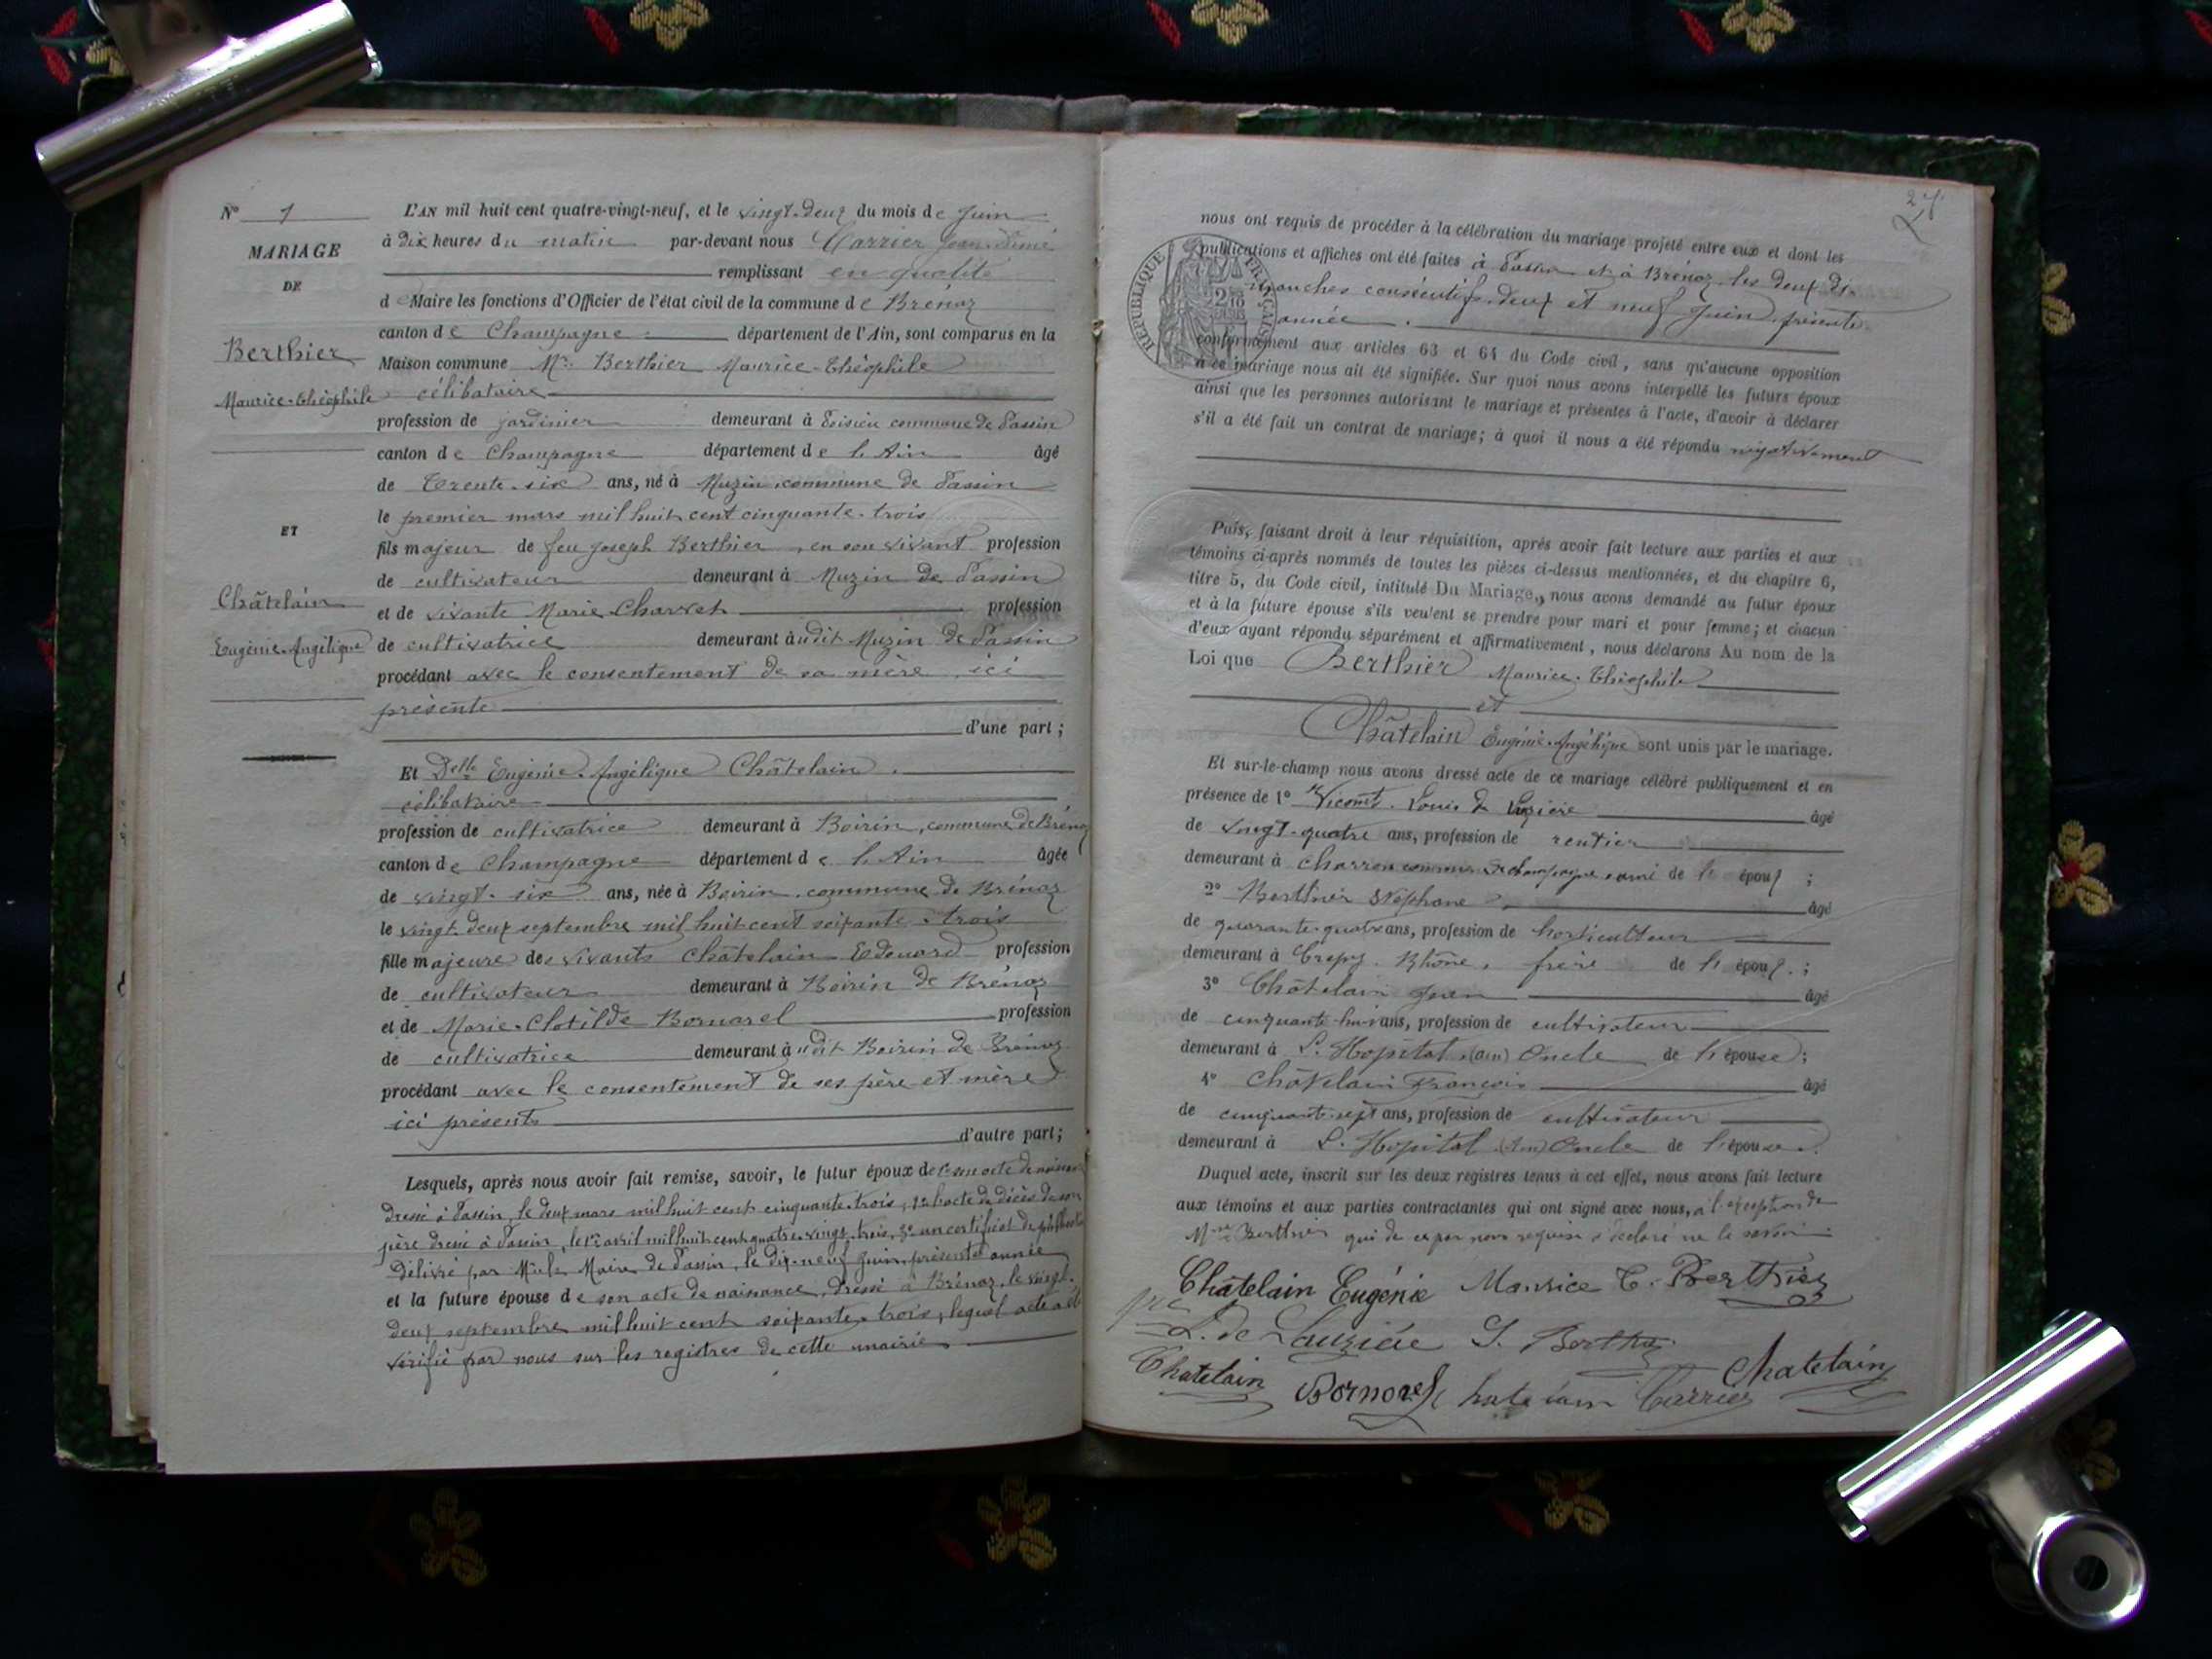 N° 1
MARIAGE
DE
Berthier
Maurice-Théophile
ET
Châtelain
Eugénie-Angélique
L'AN mil huit cent quatre-vingt-neuf, et le vingt-deux du mois de Juin
à dix heures du matin par-devant nous Carrier Jean-Aimé
remplissant en qualité
de Maire les fonctions d'Officier de l'état civil de la commune de Brénaz
canton de Champagne département de l'Ain, sont comparus en la
Maison commune Mr Berthier Maurice-Théophile
célibataire
profession de jardinier demeurant à Poisieu commune de Passin
canton de Champagne département de l'Ain âgé
de Trente-six ans, né à Muzin, commune de Passin
le premier mars mil huit cent cinquante-trois
fils majeur de feu Joseph Berthier, en son vivant profession
de cultivateur demeurant à Muzin de Passin
et de vivante Marie Charvet profession
de cultivatrice demeurant àudit Muzin de Passin
procédant avec le consentement de sa mère, ici
présente
d'une part ;
Et Delle Eugénie-Angélique Châtelain.
célibataire
profession de cultivatrice demeurant à Boirin, commune de Brénaz
canton de Champagne département de l'Ain âgée
de vingt-six ans, née à Boirin, commune de Brénaz
le vingt-deux septembre mil huit cent soixante-trois
fille majeure des vivants Châtelain Edouard profession
de cultivateur demeurant à Boirin de Brénaz
et de Marie-Clotilde Bornarel profession
de cultivatrice demeurant àudit Boirin de Brénaz
procédant avec le consentement de ses père et mère
ici présents
d'autre part ;
Lesquels, après nous avoir fait remise, savoir, le futur époux de 1° son acte de naissance
dressé à Passin, le deux mars mil huit cent cinquante-trois, 2° l'acte de décès de son
père dressé à Passin, le 1er avril mil huit cent quatre-vingt-trois, 3° un certificat de publication
délivré par Mr le Maire de Passin, le dix-neuf Juin, présente année
et la future épouse de son acte de naissance, dressé à Brénaz, le vingt-
deux septembre mil huit cent soixante-trois, lequel acte a été
vérifié par nous sur les registres de cette mairie
27
RÉPUBLIQUE FRANÇAISE
nous ont requis de procéder à la célébration du mariage projeté entre eux et dont les
publications et affiches ont été faites à Passin et à Brénaz, les deux di-
manches consécutifs, deux et neuf Juin, présente
année.
conformément aux articles 63 et 64 du Code civil, sans qu'aucune opposition
à ce mariage nous ait été signifiée. Sur quoi nous avons interpellé les futurs époux
ainsi que les personnes autorisant le mariage et présentes à l'acte, d'avoir à déclarer
s'il a été fait un contrat de mariage ; à quoi il nous a été répondu négativement
Puis, faisant droit à leur réquisition, après avoir fait lecture aux parties et aux
témoins ci-après nommés de toutes les pièces ci-dessus mentionnées, et du chapitre 6,
titre 5, du Code civil, intitulé Du Mariage, nous avons demandé au futur époux
et à la future épouse s'ils veulent se prendre pour mari et pour femme ; et chacun
d'eux ayant répondu séparément et affirmativement, nous déclarons Au nom de la
Loi que Berthier Maurice-Théophile
et
Châtelain Eugénie-Angélique sont unis par le mariage.
Et sur-le-champ nous avons dressé acte de ce mariage célébré publiquement et en
présence de 1° Louis de âgé
de vingt-quatre ans, profession de rentier
demeurant à commune de Champagne, ami de l'époux ;
2° Berthier Stéphane âgé
de quarante-quatre ans, profession de horticulteur
demeurant à Rhône, frère de l'époux ;
3° Châtelain Jean âgé
de cinquante-huit ans, profession de cultivateur
demeurant à L'Hopital (Ain) Oncle de l'épouse ;
4° Châtelain François âgé
de cinquante-sept ans, profession de cultivateur
demeurant à L'Hopital (Ain) Oncle de l'épouse.
Duquel acte, inscrit sur les deux registres tenus à cet effet, nous avons fait lecture
aux témoins et aux parties contractantes qui ont signé avec nous, à l'exception de
Mme Berthier qui de ce par nous requise a déclaré ne le savoir
Châtelain Eugénie Maurice T. Berthier
L. de Lauzière S. Berthier
Chatelain Bornarel Chatelain Carrier Chatelain